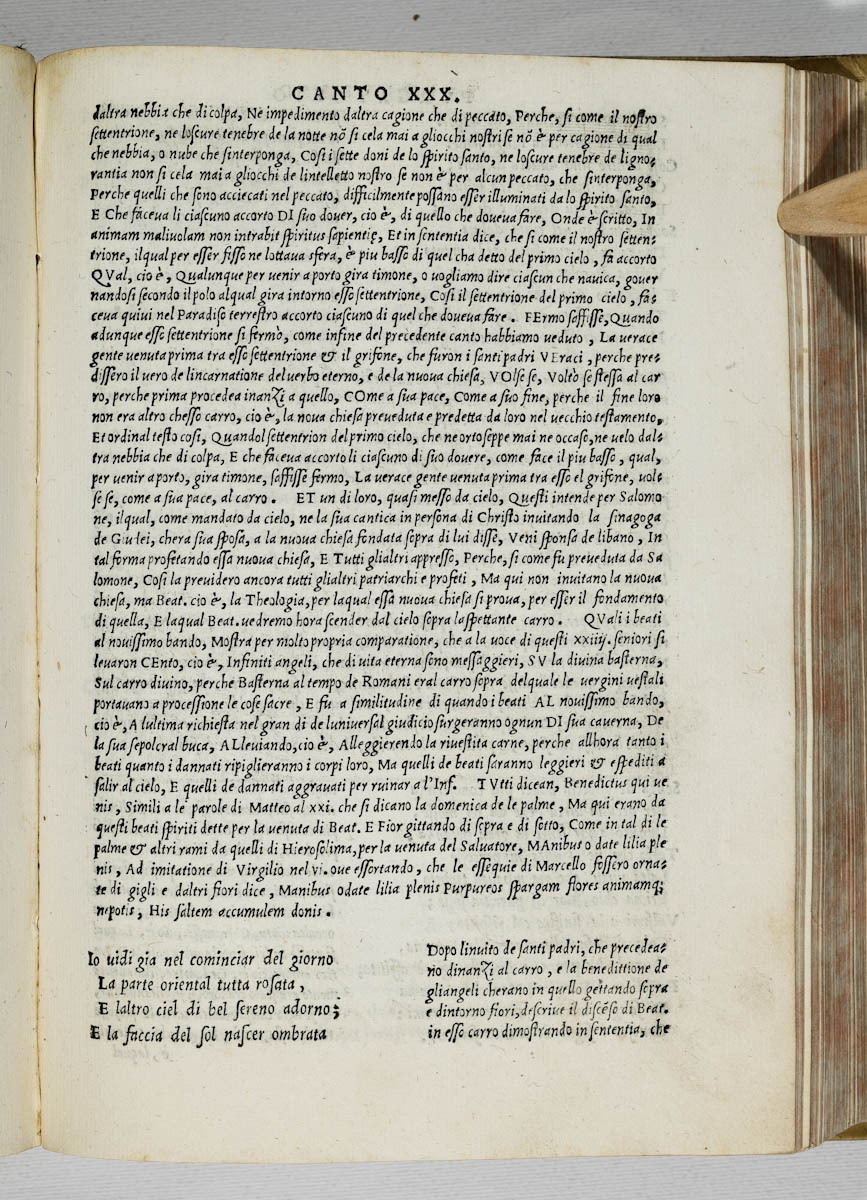 CANTO XXX.
daltra nebbia che di colpa, Ne impedimento daltra cagione che di peccato, Perche, si come il nostro
settentrione, ne loscure tenebre de la notte nō si cela mai a gliocchi nostri se nō è per cagione di qual
che nebbia, o nube che sinterponga, Cosi i sette doni de lo spirito santo, ne loscure tenebre deligno-
rantia non si cela mai a gliocchi de lintelletto nostro se non è per alcun peccato, che sinterponga,
Perche quelli che sono acciecati nel peccato, difficilmente possano esser illuminati da lo spirito santo,
E Che faceua li ciascuno accorto DI suo douer, cio è, di quello che doueua fare, Onde è scritto, In
animam maliuolam non intrabit spiritus sapientię, Et in sententia dice, che si come il nostro setten-
trione, ilqual per esser fisso ne lottaua sfera, è piu basso di quel cha detto del primo cielo, fa accorto
QVal, cio è, Qualunque per venir a porto gira timone, o uogliamo dire ciascun che nauica, gouer
nandosi secondo il polo alqual gira intorno esso settentrione, Cosi il settentrione del primo cielo, fa-
ceua quiui nel Paradiso terrestro accorto ciascuno di quel che doueua fare. FErmo saffisse, Quando
adunque esso settentrione si fermò, come infine del precedente canto habbiamo ueduto, La uerace
gente uenuta prima tra esso settentrione & il grifone, che furon i santi padri VEraci, perche pre-
dissero il uero de lincarnatione del uerbo eterno, e de la nuoua chiesa, VOlse se, Voltò se stessa al car
ro, perche prima procedea inanzi a quello, COme a sua pace, Come a suo fine, perche il fine loro
non era altro chesso carro, cio è, la noua chiesa preueduta e predetta da loro nel uecchio testamento,
Et ordinal testo cosi, Quandol settentrion del primo cielo, che ne orto seppe mai ne occaso, ne uelo dal-
tra nebbia che di colpa, E che faceua accorto li ciascuno di suo douere, come face il piu basso, qual,
per uenir a porto, gira timone, saffisse fermo, La uerace gente uenuta prima tra esso el grifone, uol-
se se, come a sua pace, al carro. ET un di loro, quasi messo da cielo, Questi intende per Salomo
ne, ilqual, come mandato da cielo, ne la sua cantica in persona di Christo inuitando la sinagoga
de Giudei, chera sua sposa, a la nuoua chiesa fondata sopra di lui disse, Veni sponsa de libano, In
tal forma profetando essa nuoua chiesa, E Tutti glialtri appresso, Perche, si come fu preueduta da Sa
lomone, Cosi la preuidero ancora tutti glialtri patriarchi e profeti, Ma qui non inuitano la nuoua
chiesa, ma Beat. cio è, la Theologia, per laqual essa nuoua chiesa si proua, per esser il fondamento
di quella, E laqual Beat. uedremo hora scender dal cielo sopra laspettante carro. QVali i beati
al nouissimo bando, Mostra per molto propria comparatione, che a la uoce di questi xxiiij. seniori si
leuaron CEnto, cio è, Infiniti angeli, che di uita eterna sono messaggieri, SV la diuina basterna,
Sul carro diuino, perche Basterna al tempo de Romani eral carro sopra delquale le uergini uestali
portauano a processione le cose sacre, E fu a similitudine di quando i beati AL nouissimo bando,
cio è, A lultima richiesta nel gran di de luniuersal giudicio surgeranno ognun DI sua cauerna, De
la sua sepolcral buca, ALleuiando, cio è, Alleggierendo la riuestita carne, perche allhora tanto i
beati quanto i dannati ripiglieranno i corpi loro, Ma quelli de beati saranno leggieri & espediti a
salir al cielo, E quelli de dannati aggrauati per ruinar a l'Inf. TVtti dicean, Benedictus qui ue
nis, Simili a le parole di Matteo al xxi. che si dicano la domenica de le palme, Ma qui erano da
questi beati spiriti dette per la uenuta di Beat. E Fior gittando di sopra e di sotto, Come in tal di le
palme & altri rami da quelli di Hierosolima, per la uenuta del Saluatore, MAnibus o date lilia ple
nis, Ad imitatione di Virgilio nel vi. oue essortando, che le essequie di Marcello fossero orna-
te di gigli e daltri fiori dice, Manibus odate lilia plenis Purpureos spargam flores animamq;
nepotis, His saltem accumulem donis.
Io uidi gia nel cominciar del giorno
La parte oriental tutta rosata,
E laltro ciel di bel sereno adorno;
E la faccia del sol nascer ombrata
Dopo linuito de santi padri, che precedea-
no dinanzi al carro, e la benedittione de
gliangeli cherano in quello gettando sopra
e dintorno fiori, descriue il discēso di Beat.
in esso carro dimostrando in sententia, che